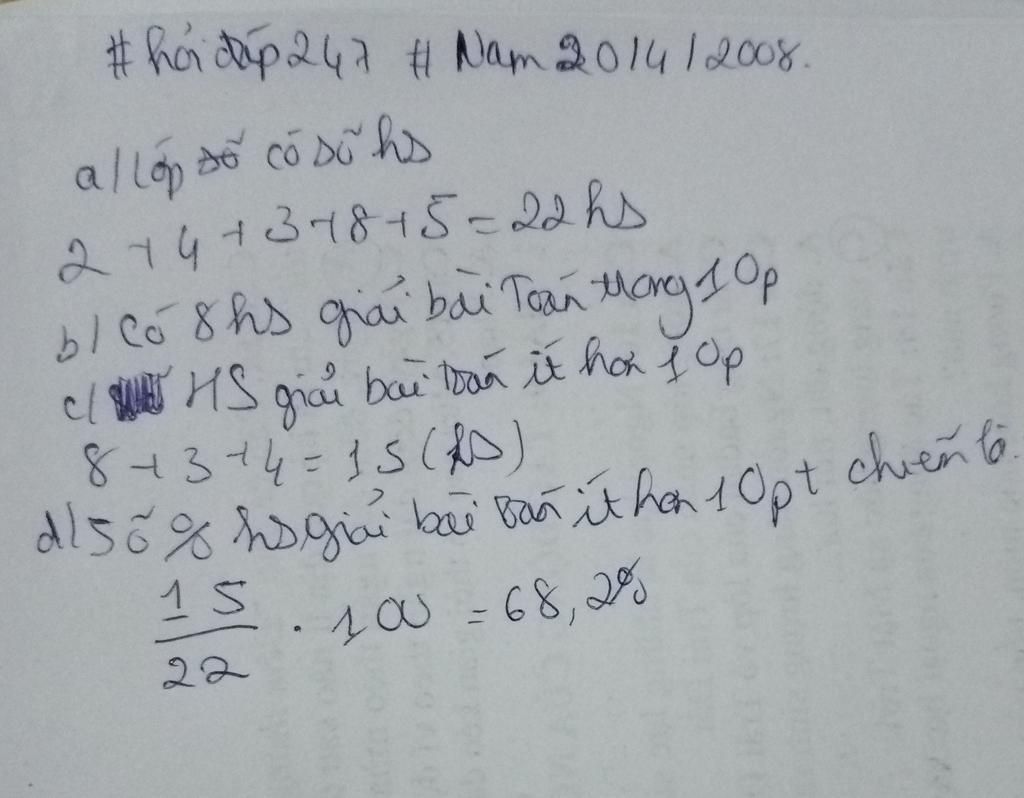 #hỏi đáp 247 # Nam 20/4/2008.
a/ Lớp số có số hs
2 + 4 + 3 + 8 + 5 = 22 hs
b/ Có 8 hs giải bài Toán trong 10p
c/ HS giải bài toán ít hơn 10p
8 + 3 + 4 = 15 (hs)
d/ Số % hs giải bài toán ít hơn 10pt chiếm là.
15/22 . 100 = 68,2%